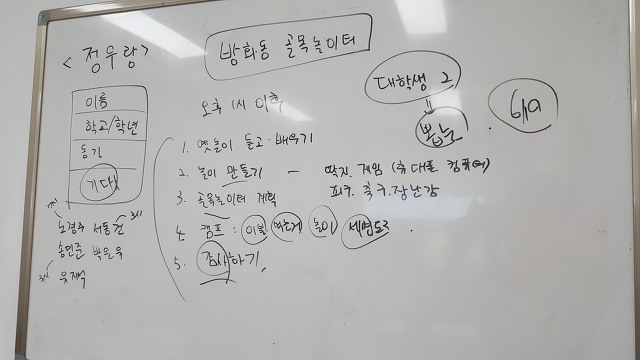 <정우랑>
방화동 골목놀이터
이름
학교/학년
동기
기대
노경주 서동건 3시
송민준 박은우
3시 유재식
오후 1시 이후
1. 옛놀이 듣고 배우기
2. 놀이 만들기 - 딱지. 게임 (휴대폰. 컴퓨터)
피구. 축구. 장난감
3. 골목놀이터 계획
4. 캠프 : 이불 놀이 세면도구.
5. 감사하기.
대학생 2